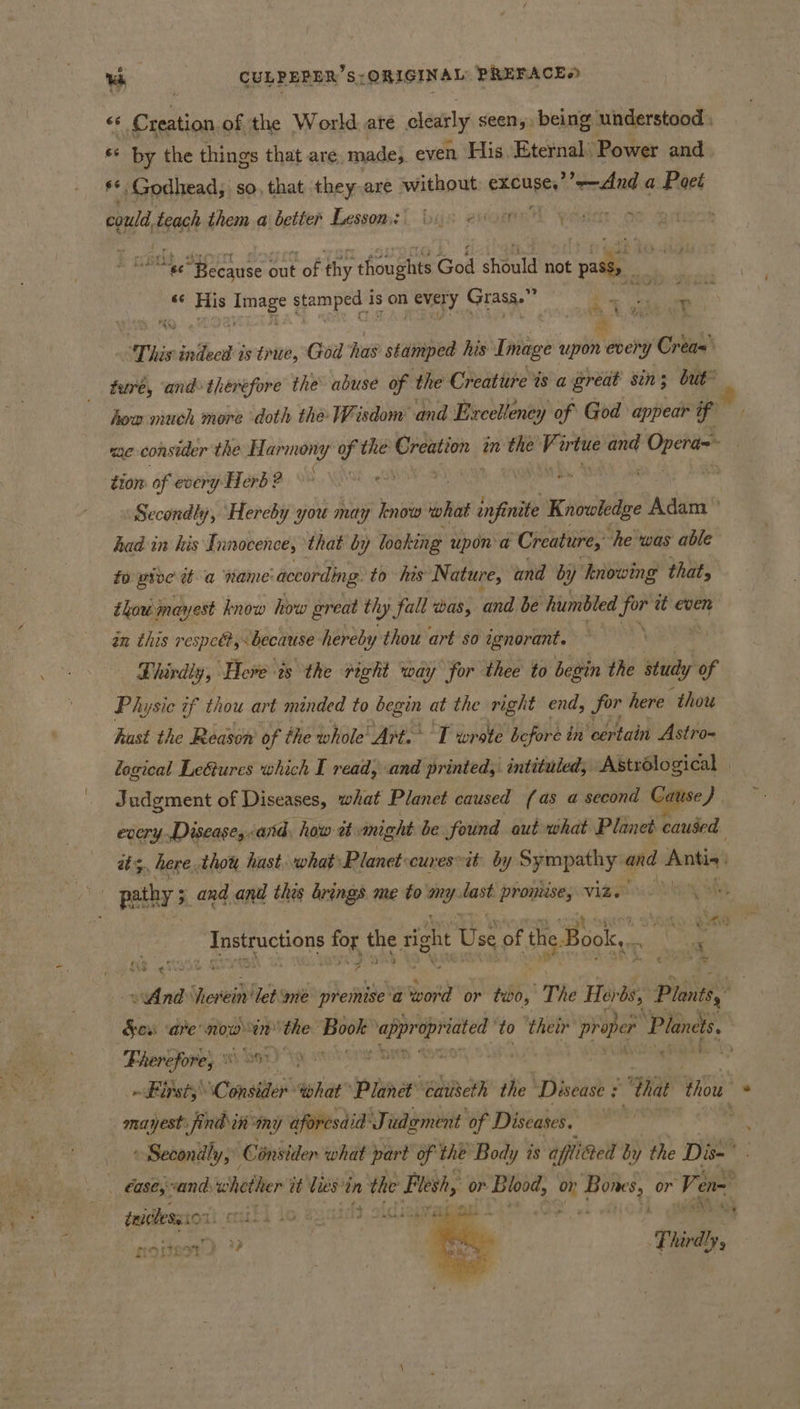 vi CULPEPER'S ORIGINAL PREFACE.
“ Creation of the World are clearly seen, being understood
“ by the things that are made, even His Eternal Power and
“ Godhead, so that they are without excuse.”—And a Poet
could teach them a better Lesson:
“ Because out of thy thoughts God should not pass,
“ His Image stamped is on every Grass.”
This indeed is true, God has stamped his Image upon every Crea-
ture, and therefore the abuse of the Creature is a great sin; but
how much more doth the Wisdom and Excellency of God appear if
we consider the Harmony of the Creation in the Virtue and Opera-
tion of every Herb?
Secondly, Hereby you may know what infinite Knowledge Adam
had in his Innocence, that by looking upon a Creature, he was able
to give it a name according to his Nature, and by knowing that,
thou mayest know how great thy fall was, and be humbled for it even
in this respect, because hereby thou art so ignorant.
Thirdly, Here is the right way for thee to begin the study of
Physic if thou art minded to begin at the right end, for here thou
hast the Reason of the whole Art. I wrote before in certain Astro-
logical Lectures which I read, and printed, intituled, Astrological
Judgment of Diseases, what Planet caused (as a second Cause)
every Disease, and how it might be found out what Planet caused
it; here thou hast what Planet cures it by Sympathy and Anti-
pathy; and and this brings me to my last promise, viz.
Instructions for the right Use of the Book.
And herein let me premise a word or two, The Herbs, Plants,
&c. are now in the Book appropriated to their proper Planets.
Therefore,
First, Consider what Planet causeth the Disease; that thou
mayest find in my aforesaid Judgment of Diseases.
Secondly, Consider what part of the Body is afflicted by the Dis-
ease, and whether it lies in the Flesh, or Blood, or Bones, or Ven-
tricles.
Thirdly,